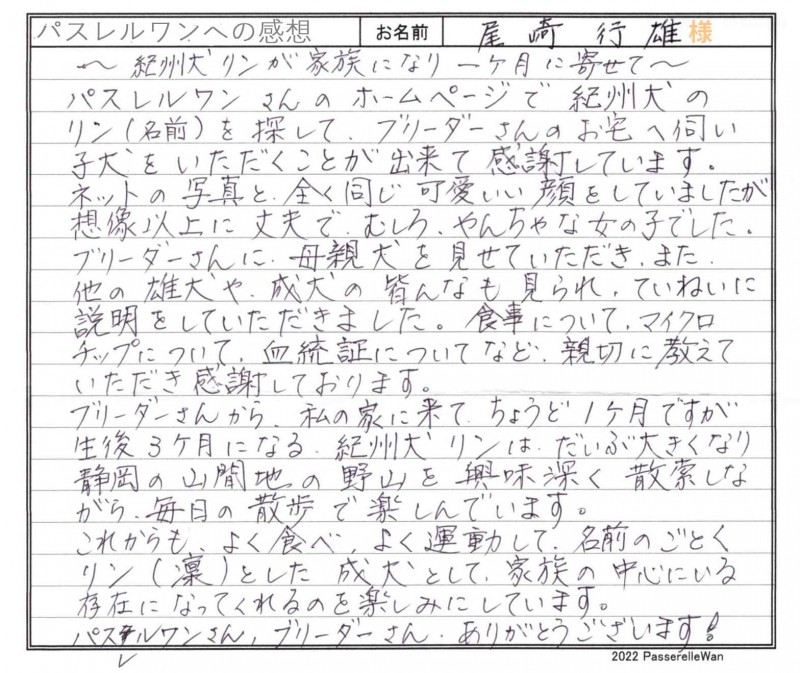 パスレルワンへの感想 お名前 尾崎 行雄 様
〜 紀州犬リンが家族になり一ヶ月に寄せて〜
パスレルワンさんのホームページで紀州犬の
リン(名前)を探して、ブリーダーさんのお宅へ伺い
子犬をいただくことが出来て感謝しています。
ネットの写真と、全く同じ可愛いい顔をしていましたが
想像以上に丈夫で、むしろ、やんちゃな女の子でした。
ブリーダーさんに、母親犬を見せていただき、また、
他の雄犬や、成犬の皆んなも見られ、ていねいに
説明をしていただきました。食事について、マイクロ
チップについて、血統証についてなど、親切に教えて
いただき感謝しております。
ブリーダーさんから、私の家に来て、ちょうど1ヶ月ですが
生後3ヶ月になる、紀州犬リンは、だいぶ大きくなり
静岡の山間地の野山を興味深く散索しな
がら、毎日の散歩で楽しんでいます。
これからも、よく食べ、よく運動して、名前のごとく
リン(凛)とした成犬として、家族の中心にいる
存在になってくれるのを楽しみにしています。
パスルワンさん、ブリーダーさん、ありがとうございます!
2022 PasserelleWan